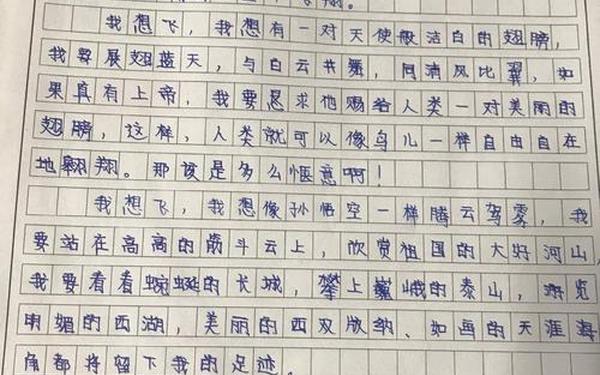 翔。
我想飞，我想有一对天使般洁白的翅膀，
我要展翅蓝天，与白云共舞，同清风比翼，如
果真有上帝，我要恳求他赐给人类一对美丽的
翅膀，这样，人类就可以像鸟儿一样自由自在
地翱翔。那该是多么惬意啊！
我想飞，我想像孙悟空一样腾云驾雾，我
要站在高高的筋斗云上，欣赏祖国的大好河山，
我要看看蜿蜒的长城，攀上巍峨的泰山，游览
明媚的西湖，美丽的西双版纳、如画的天涯海
角都将留下我的足迹。